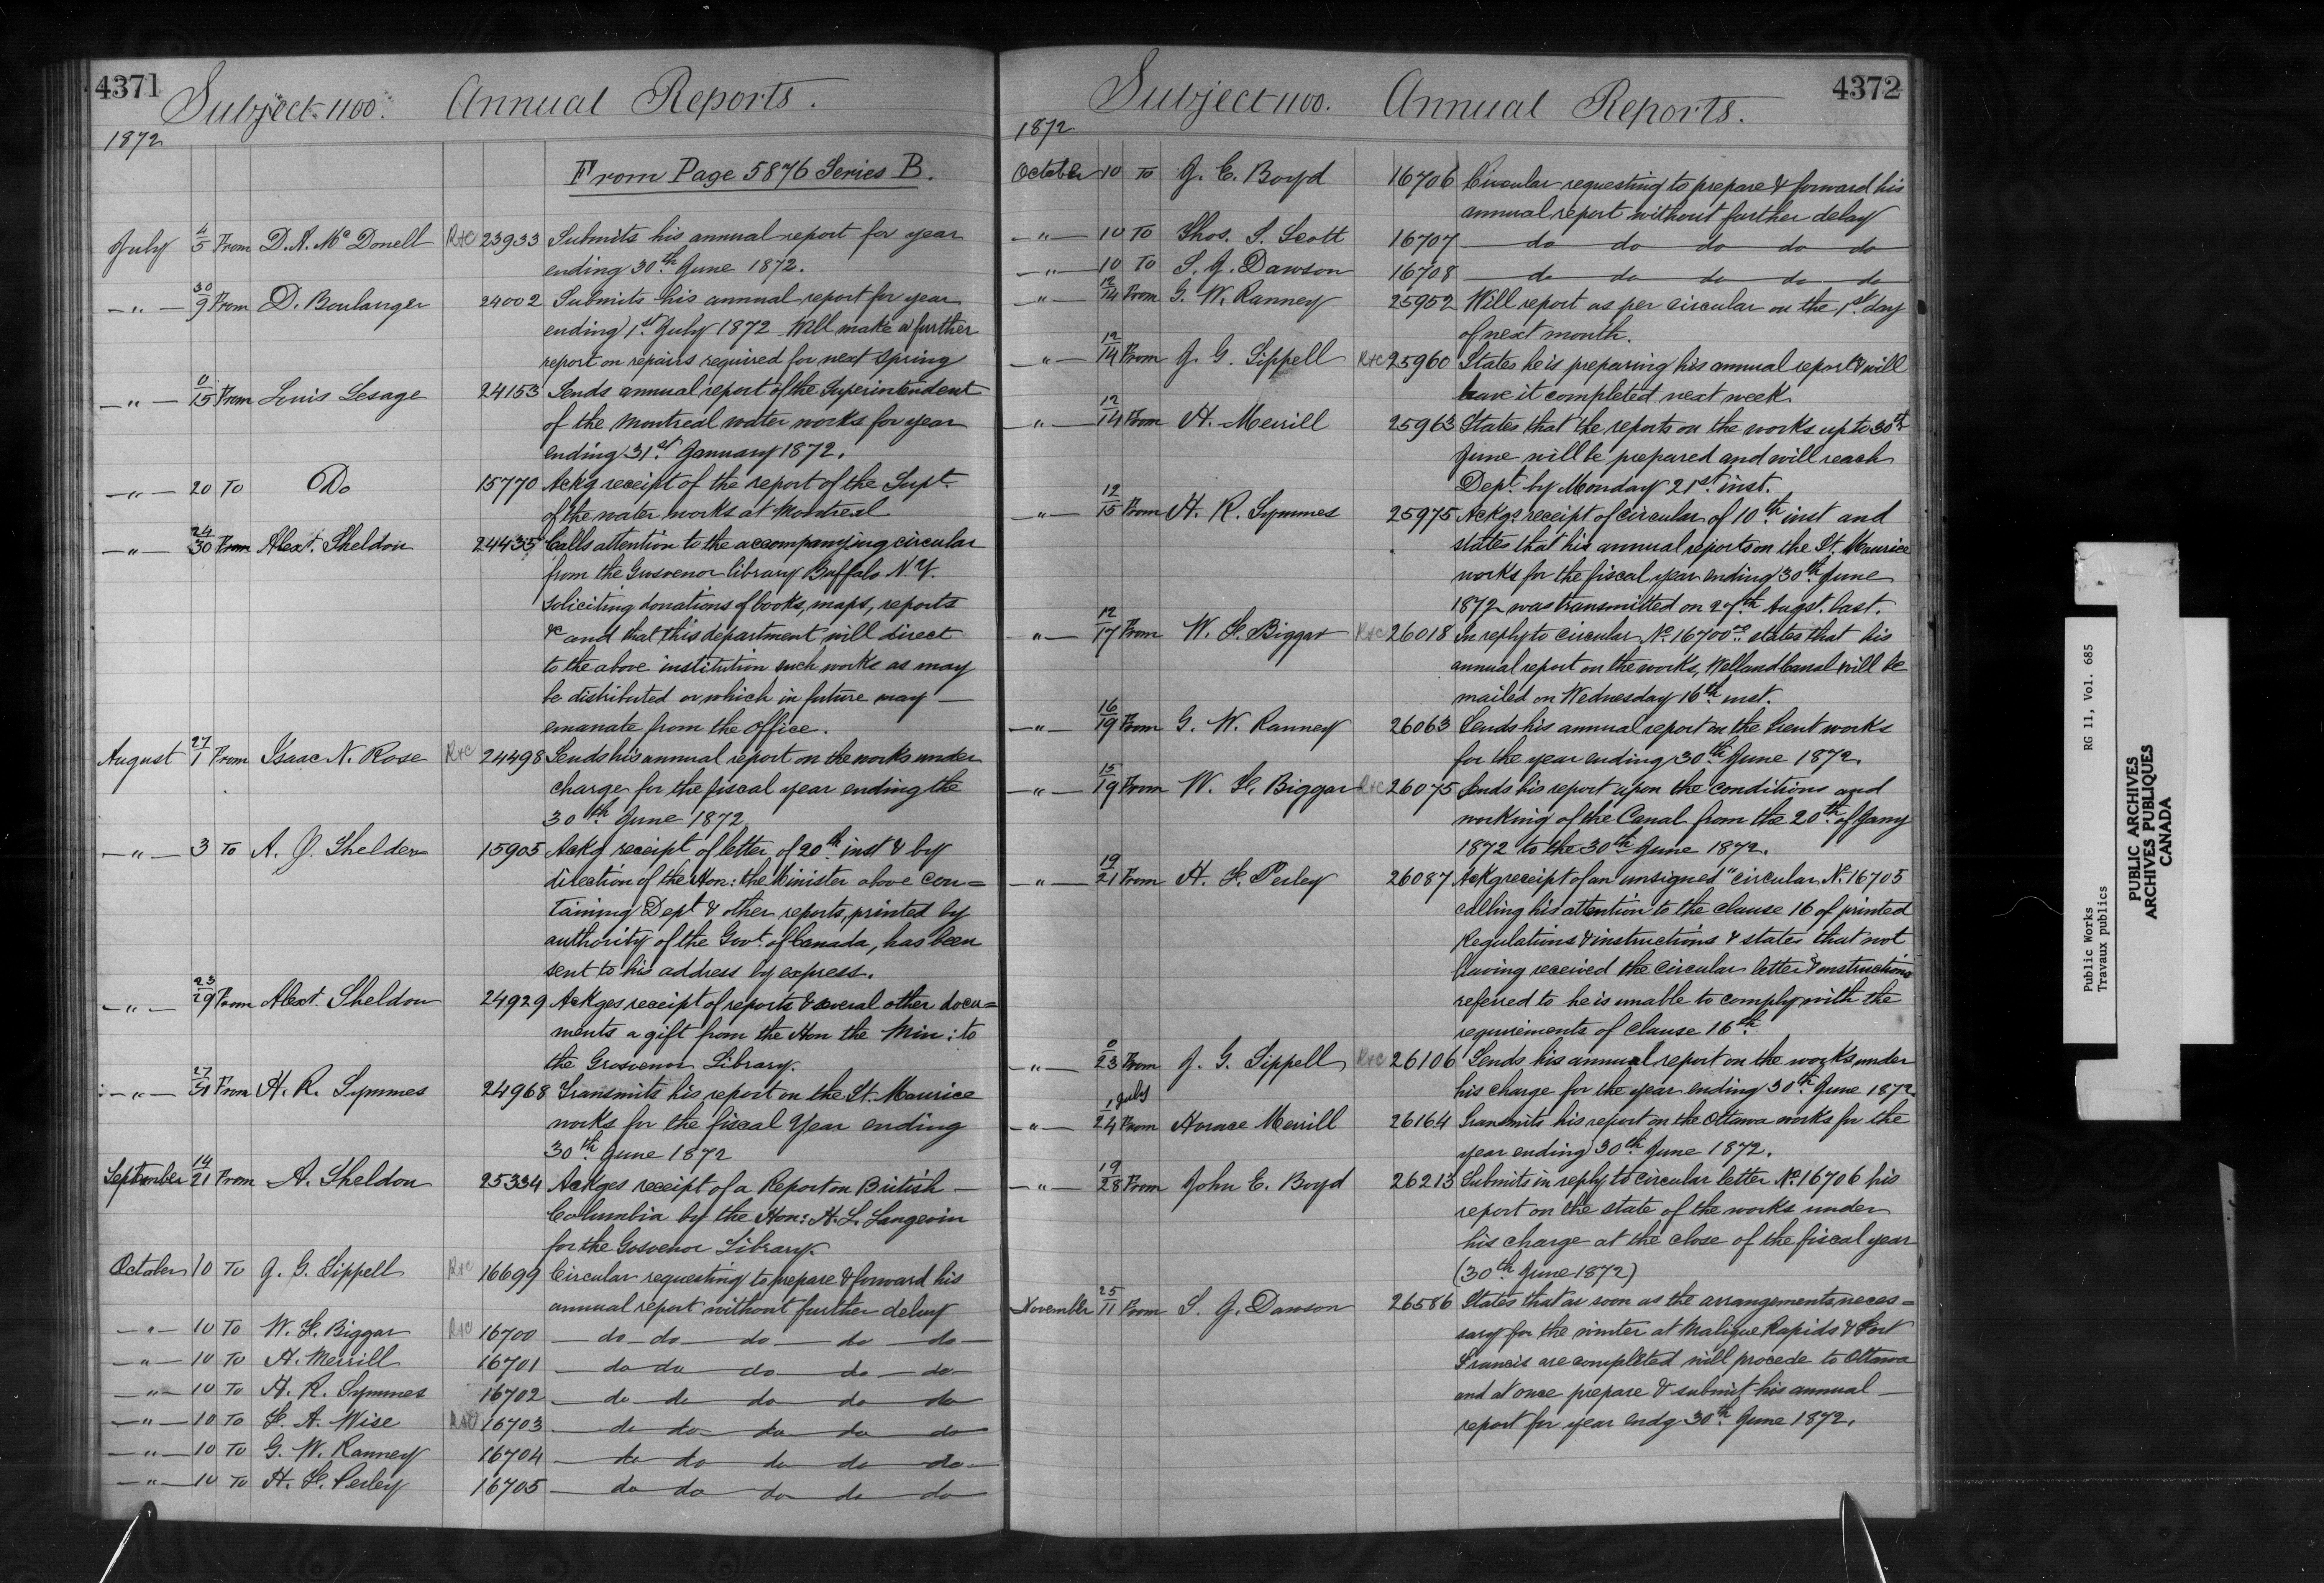 4371
Subject 1100. Annual Reports.
1872
From Page 5876 Series B.
July 4/5 From D. A. McDonell R&C 23933 Submits his annual report for year
ending 30th June 1872.
—"— 30/9 From D. Boulanger 24002 Submits his annual report for year
ending 1st July 1872 Will make a further
report on repairs required for next Spring
—"— 0/15 From Louis Lesage 24153 Sends annual report of the Superintendent
of the Montreal water works for year
ending 31st January 1872.
—"— 20 To Do 15770 Ackg receipt of the report of the Supt.
of the water works at Montreal
—"— 24/30 From Alext. Sheldon 24435 Calls attention to the accompanying circular
from the Grosvenor library Buffalo N.Y.
soliciting donations of books, maps, reports
&c and that this department will direct
to the above institution such works as may
be distributed or which in future may —
emanate from the office.
August 27/1 From Isaac N. Rose R&C 24498 Sends his annual report on the works under
charge for the fiscal year ending the
30th June 1872
—"— 3 To A. J. Sheldon 15905 Ackg receipt of letter of 20th inst & by
direction of the Hon: the Minister above con=
taining Dept & other reports, printed by
authority of the Govt. of Canada, has been
sent to his address by express.
—"— 23/29 From Alext. Sheldon 24929 Ackges receipt of reports & several other docu=
ments a gift from the Hon the Min: to
the Grosvenor Library.
—"— 27/31 From H. R. Symmes 24968 Transmits his report on the St. Maurice
works for the fiscal Year ending
30th June 1872
September 14/21 From A. Sheldon 25334 Ackges receipt of a Report on British —
Columbia by the Hon: H. L. Langevin
for the Gosvenor Library.
October 10 To J. G. Sippell R&C 16699 Circular requesting to prepare & forward his
annual report without further delay
—"— 10 To W. F. Biggar R&C 16700 — do — do — do — do — do —
—"— 10 To H. Merrill 16701 — do do do do — do
—"— 10 To H. R. Symmes 16702 — do do do do do
—"— 10 To F. A. Wise R&C 16703 — do do do do do
—"— 10 To G. W. Ranney 16704 — do do do do do
—"— 10 To H. F. Perley 16705 — do do do do do
4372
Subject 1100. Annual Reports.
1872
October 10 To J. E. Boyd 16706 Circular requesting to prepare & forward his
annual report without further delay
—"— 10 To Thos. S. Scott 16707 — do do do do do
—"— 10 To S. J. Dawson 16708 — do do do do do
—"— 12/14 From G. W. Ranney 25952 Will report as per circular on the 1st day
of next month.
—"— 12/14 From J. G. Sippell R&C 25960 States he is preparing his annual report & will
have it completed next week.
—"— 12/14 From H. Merrill 25963 States that the reports on the works up to 30th
June will be prepared and will reach
Dept. by Monday 21st inst.
—"— 12/15 From H. R. Symmes 25975 Ackgs receipt of circular of 10th inst and
states that his annual reports on the St. Maurice
works for the fiscal year ending 30th June
1872 was transmitted on 27th Augst. last.
—"— 12/17 From W. F. Biggar R&C 26018 In reply to circular No. 16700 states that his
annual report on the works, Welland Canal will be
mailed on Wednesday 16th inst.
—"— 16/19 From G. W. Ranney 26063 Sends his annual report on the Trent works
for the year ending 30th June 1872.
—"— 15/19 From W. F. Biggar R&C 26075 Sends his report upon the conditions and
working of the Canal from the 20th of Jany
1872 to the 30th June 1872.
—"— 19/21 From H. F. Perley 26087 Ackg receipt of an unsigned "circular No. 16705
calling his attention to the clause 16 of printed
Regulations & instructions & states that not
having received the circular letter & instructions
referred to he is unable to comply with the
requirements of clause 16th
—"— 0/23 From J. G. Sippell R&C 26106 Sends his annual report on the works under
his charge for the year ending 30th June 1872.
—"— 1 July/24 From Horace Merrill 26164 Transmits his report on the Ottawa works for the
year ending 30th June 1872.
—"— 19/28 From John E. Boyd 26213 Submits in reply to circular letter No. 16706 his
report on the state of the works under
his charge at the close of the fiscal year
(30th June 1872)
November 25/11 From S. J. Dawson 26586 States that as soon as the arrangements neces=
sary for the winter at Maligne Rapids & Fort
Francis are completed will procede to Ottawa
and at once prepare & submit his annual —
report for year endg. 30th June 1872.
Public Works RG 11, Vol. 685
Travaux publics
PUBLIC ARCHIVES
ARCHIVES PUBLIQUES
CANADA